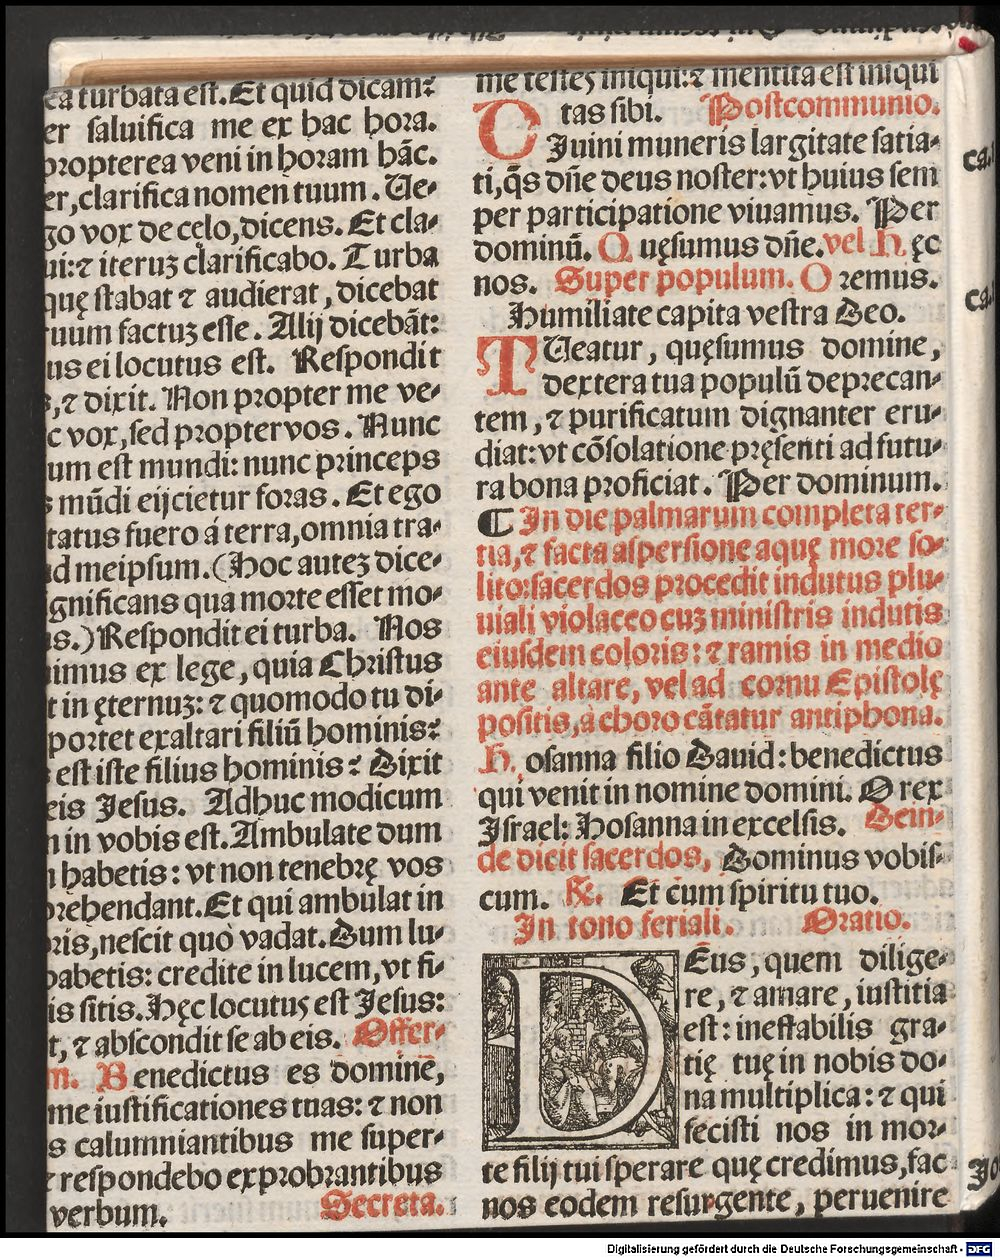 ea turbata est. Et quid dicam?
er saluifica me ex hac hora.
propterea veni in horam hāc.
er, clarifica nomen tuum. Ue-
go vox de cęlo, dicens. Et cla-
ui: ⁊ iteruꝫ clarificabo. Turba
quę stabat ⁊ audierat, dicebat
uum factuꝫ esse. Alij dicebāt:
us ei locutus est. Respondit
s, ⁊ dixit. Non propter me ve-
c vox, sed propter vos. Nunc
um est mundi: nunc princeps
s mūdi eijcietur foras. Et ego
tatus fuero á terra, omnia tra-
ad meipsum. (Hoc auteꝫ dice-
gnificans qua morte esset mo-
s.) Respondit ei turba. Nos
imus ex lege, quia Christus
t in ęternuꝫ: ⁊ quomodo tu di-
portet exaltari filiū hominis?
est iste filius hominis? Dixit
eis Jesus. Adhuc modicum
n in vobis est. Ambulate dum
habetis: vt non tenebrę vos
rehendant. Et qui ambulat in
ris, nescit quò vadat. Dum lu-
habetis: credite in lucem, vt fi-
is sitis. Hęc locutus est Jesus:
t, ⁊ abscondit se ab eis. Offer-
m. Benedictus es domine,
me iustificationes tuas: ⁊ non
s calumniantibus me super-
respondebo exprobrantibus
verbum. Secreta.
me testeꝫ iniqui: ⁊ mentita est iniqui
tas sibi. Postcommunio.
Diuini muneris largitate satia-
ti, q̄s dn̄e deus noster: vt huius sem
per participatione viuamus. Per
dominū. Quęsumus dn̄e. vel Hęc
nos. Super populum. Oremus.
Humiliate capita vestra Deo.
TUeatur, quęsumus domine,
dextera tua populū deprecan-
tem, ⁊ purificatum dignanter eru-
diat: vt cōsolatione pręsenti ad futu-
ra bona proficiat. Per dominum.
¶ In die palmarum completa ter-
tia, ⁊ facta aspersione aquę more so-
lito: sacerdos procedit indutus plu-
uiali violaceo cuꝫ ministris indutis
eiusdem coloris: ⁊ ramis in medio
ante altare, vel ad cornu Epistolę
positis, à choro cātatur antiphona.
Hosanna filio Dauid: benedictus
qui venit in nomine domini. O rex
Israel: Hosanna in excelsis. Dein-
de dicit sacerdos, Dominus vobis-
cum. ℟. Et cum spiritu tuo.
In tono feriali. Oratio.
DEus, quem dilige-
re, ⁊ amare, iustitia
est: ineffabilis gra-
tię tuę in nobis do-
na multiplica: ⁊ qui
fecisti nos in mor-
te filij tui sperare quę credimus, fac
nos eodem resurgente, peruenire
ca.
ca.
Jo
Digitalisierung gefördert durch die Deutsche Forschungsgemeinschaft - DFG